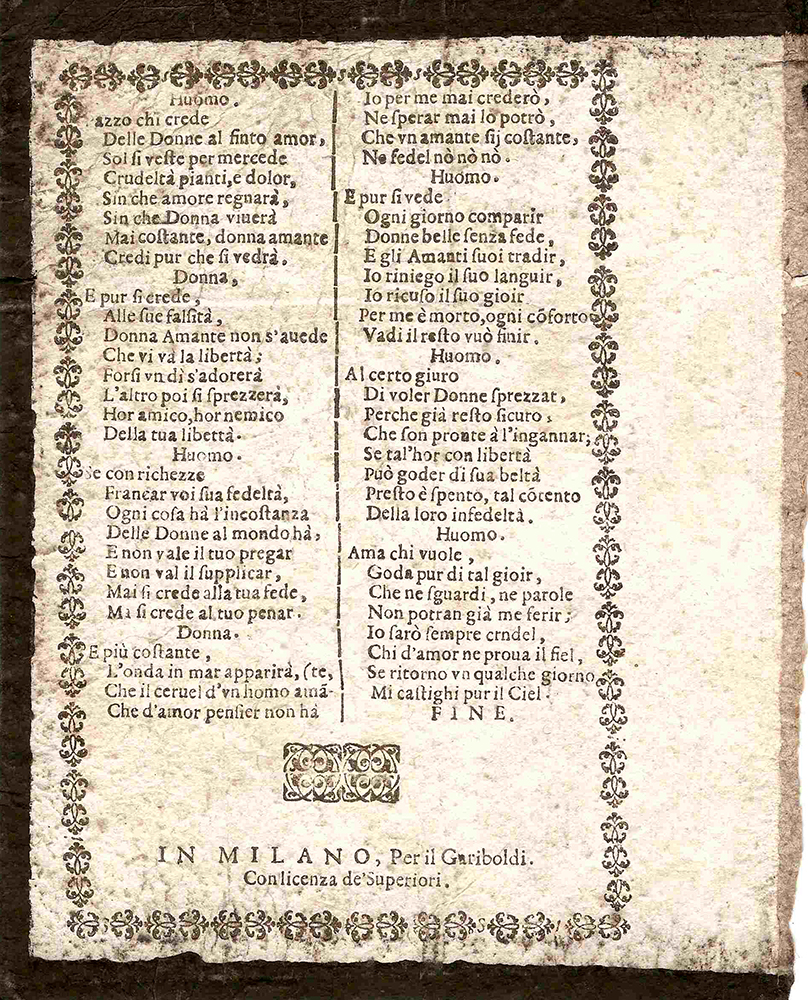 Huomo.
azzo chi crede
Delle Donne al finto amor,
Sol si veste per mercede
Crudeltà pianti,e dolor,
Sin che amore regnarà,
Sin che Donna viuerà
Mai costante, donna amante
Credi pur che si vedrà.
Donna,
E pur si crede,
Alle sue falsità,
Donna Amante non s'auede
Che vi và la libertà;
Forsi vn dì s'adorerà
L'altro poi si sprezzerà,
Hor amico,hor nemico
Della tua libettà.
Huomo.
Se con richezze
Francar voi sua fedeltà,
Ogni cosa hà l'incostanza
Delle Donne al mondo hà,
E non vale il tuo pregar
E non val il supplicar,
Mai si crede alla tua fede,
Mà si crede al tuo penar.
Donna.
E più costante,
L'onda in mar apparirà, (te,
Che il ceruel d'vn homo amã-
Che d'amor pensier non hà
Io per me mai crederò,
Ne sperar mai lo potrò,
Che vn amante sij costante,
Ne fedel nò nò nò.
Huomo.
E pur si vede
Ogni giorno comparir
Donne belle senza fede,
E gli Amanti suoi tradir,
Io riniego il suo languir,
Io ricuso il suo gioir
Per me è morto,ogni cõforto
Vadi il resto vuò finir.
Huomo.
Al certo giuro
Di voler Donne sprezzat,
Perche già resto sicuro,
Che son pronte à l'ingannar;
Se tal'hor con libertà
Può goder di sua beltà
Presto è spento, tal cõtento
Della loro infedeltà.
Huomo.
Ama chi vuole,
Goda pur di tal gioir,
Che ne sguardi, ne parole
Non potran già me ferir;
Io sarò sempre crndel,
Chi d'amor ne proua il fiel,
Se ritorno vn qualche giorno,
Mi castighi pur il Ciel.
FINE.
IN MILANO, Per il Gariboldi.
Con licenza de'Superiori.